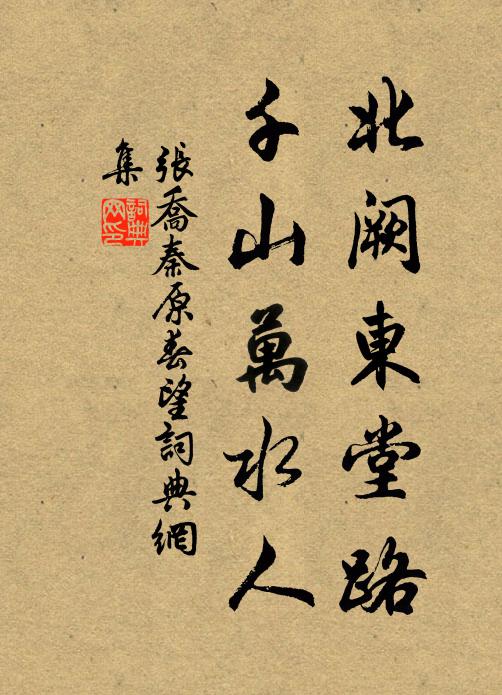 北闕東堂路
千山萬水人
張喬秦原春望詞典網
集
詞典
网印